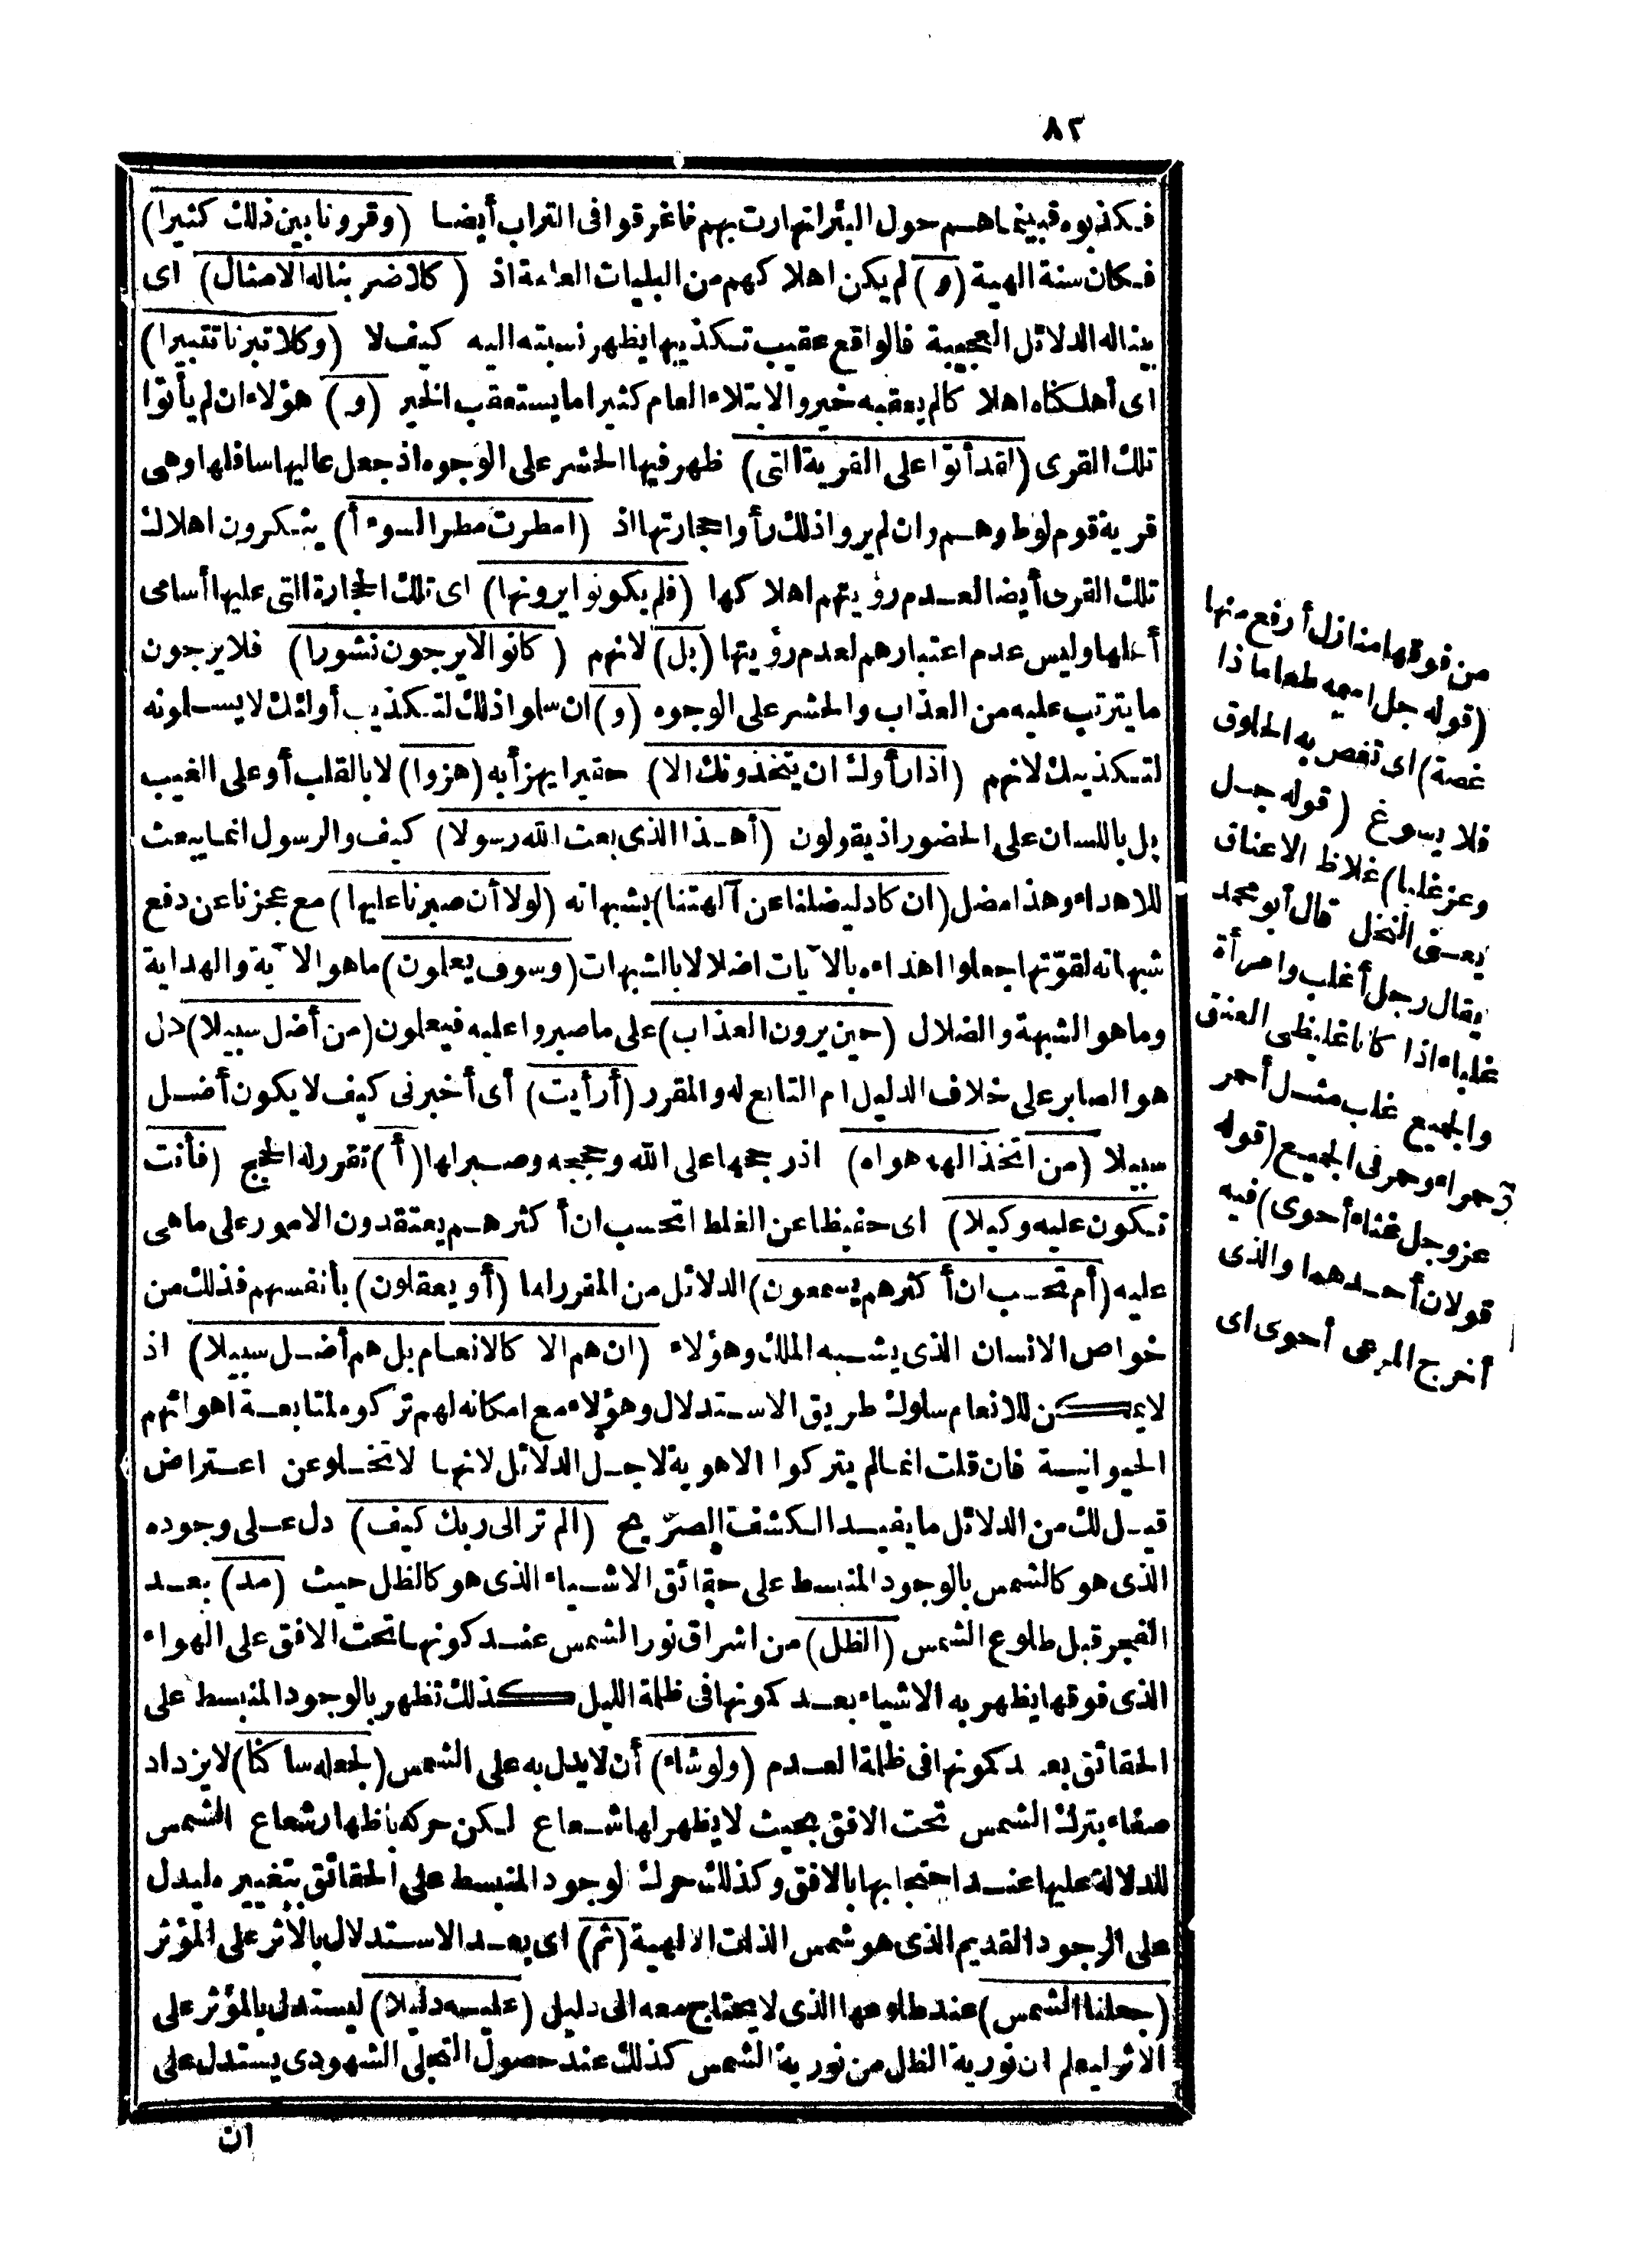 ٨٢
فكذبوه فبينما هم حول البئر انهارت بهم فاغرقوا فى التراب أيضا (وقرونا بين ذلك كثيرا)
فكان سنة الهية (و) لم يكن اهلا كهم من البليات العامة اذ (كلا ضربنا له الامثال) اى
بينا له الدلائل العجيبة فالواقع عقيب تكذيبها يظهر نسبته اليه كيف لا (وكلا تبرنا تتبيرا)
اى أهلكناه اهلا كالم يعقبه خير والابتلاء العام كثيرا ما يستعقب الخير (و) هؤلاء ان لم يأتوا
تلك القرى (لقد أتوا على القرية التى) ظهر فيها الحشر على الوجوه اذ جعل عاليها سافلها وهى
قرية قوم لوط وهم وان لم يروا ذلك رأوا حجارتها اذ (امطرت مطر السوء أ) ينكرون اهلاك
تلك القرى أيضا لعدم رؤيتهم اهلا كها (فلم يكونوا يرونها) اى تلك الحجارة التى عليها أسامى
أهلها وليس عدم اعتبارهم لعدم رؤيتها (بل) لانهم (كانوا لا يرجون نشورا) فلا يرجون
ما يترتب عليه من العذاب والحشر على الوجوه (و) ان سلوا ذلك لتكذيب أولئك لا يسلونه
لتكذيبك لانهم (اذا رأوك ان يتخذونك الا) حقيرا يهزأ به (هزوا) لا بالقلب أو على الغيب
بل باللسان على الحضور اذ يقولون (أهذا الذى بعث الله رسولا) كيف والرسول انما يبعث
للاهداء وهذا مضل (ان كاد ليضلنا عن آلهتنا) بشبهاته (لولا أن صبرنا عليها) مع عجزنا عن دفع
شبهاته لقوّتها جعلوا اهداءه بالآيات اضلالا بالشبهات (وسوف يعلمون) ما هو الآية والهداية
وما هو الشبهة والضلال (حين يرون العذاب) على ما صبروا عليه فيعلمون (من أضل سبيلا) دل
هو الصابر على خلاف الدليل ام التابع له والمقرر (أرأيت) أى أخبرنى كيف لا يكون أضل
سبيلا (من اتخذ الهه هواه) اذ رجحها على الله وحججه وصبر لها (أ) تقرر له الحجج (فأنت
تكون عليه وكيلا) اى حفيظا عن الغلط اتحسب ان أكثرهم يعتقدون الامور على ما هى
عليه (أم تحسب ان أكثرهم يسمعون) الدلائل من المقرر لها (أو يعقلون) بأنفسهم فذلك من
خواص الانسان الذى يشبه الملك وهؤلاء (ان هم الا كالانعام بل هم أضل سبيلا) اذ
لا يمكن للانعام سلوك طريق الاستدلال وهؤلاء مع امكانه لهم تركوه لمتابعة اهوائهم
الحيوانية فان قلت انما لم يتركوا الاهوية لاجل الدلائل لانها لا تخلو عن اعتراض
قيل لك من الدلائل ما يفيد الكشف الصريح (الم تر الى ربك كيف) دل على وجوده
الذى هو كالشمس بالوجود المنبسط على حقائق الاشياء الذى هو كالظل حيث (مد) بعد
الفجر قبل طلوع الشمس (الظل) من اشراق نور الشمس عند كونها تحت الافق على الهواء
الذى فوقها يظهر به الاشياء بعد كمونها فى ظلمة الليل كذلك تظهر بالوجود المنبسط على
الحقائق بعد كمونها فى ظلمة العدم (ولو شاء) أن لا يدل به على الشمس (لجعله ساكنا) لا يزداد
صفاء بترك الشمس تحت الافق بحيث لا يظهر لها شعاع لكن حركه باظهار شعاع الشمس
للدلالة عليها عند احتجابها بالافق وكذلك حرك الوجود المنبسط على الحقائق بتغييره ليدل
على الوجود القديم الذى هو شمس الذات الالهية (ثم) اى بعد الاستدلال بالأثر على المؤثر
(جعلنا الشمس) عند طلوعها الذى لا يحتاج معه الى دليل (عليه دليلا) ليستدل بالمؤثر على
الاثر ليعلم ان نورية الظل من نورية الشمس كذلك عند حصول التجلى الشهودى يستدل على
ان
من فوقها منازل أرفع منها
(قوله جل اسمه طعاما ذا
غصة) اى تغص به الحلوق
فلا يسوغ (قوله جل
وعز غلبا) غلاظ الاعناق
يعنى النخل قال أبو محمد
يقال رجل أغلب وامرأة
غلباء اذا كانا غليظى العنق
والجميع غلب مثل أحمر
وحمراء وحمر فى الجميع (قوله
عز وجل غثاء أحوى) فيه
قولان أحدهما والذى
أخرج المرعى أحوى اى